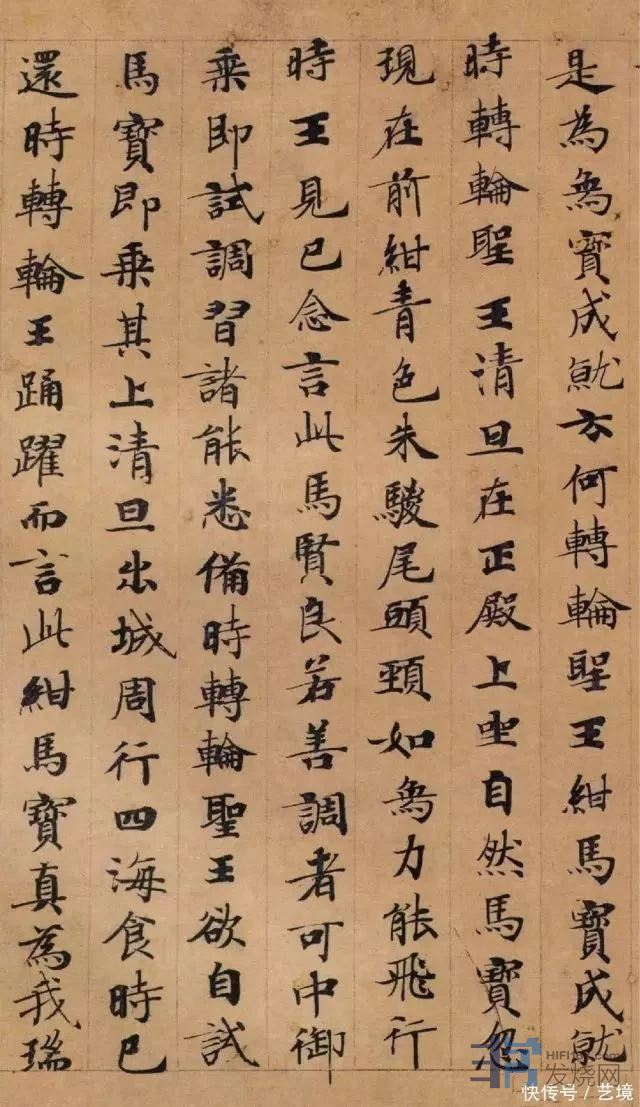 是為象寶成就云何轉輪聖王紺馬寶成就
時轉輪聖王清旦在正殿上坐自然馬寶忽
現在前紺青色朱騣尾頭頸如象力能飛行
時王見已念言此馬賢良若善調者可中御
乘即試調習諸能悉備時轉輪聖王欲自試
馬寶即乘其上清旦出城周行四海食時已
還時轉輪王踊躍而言此紺馬寶真為我瑞
发烧网
快传号/艺境